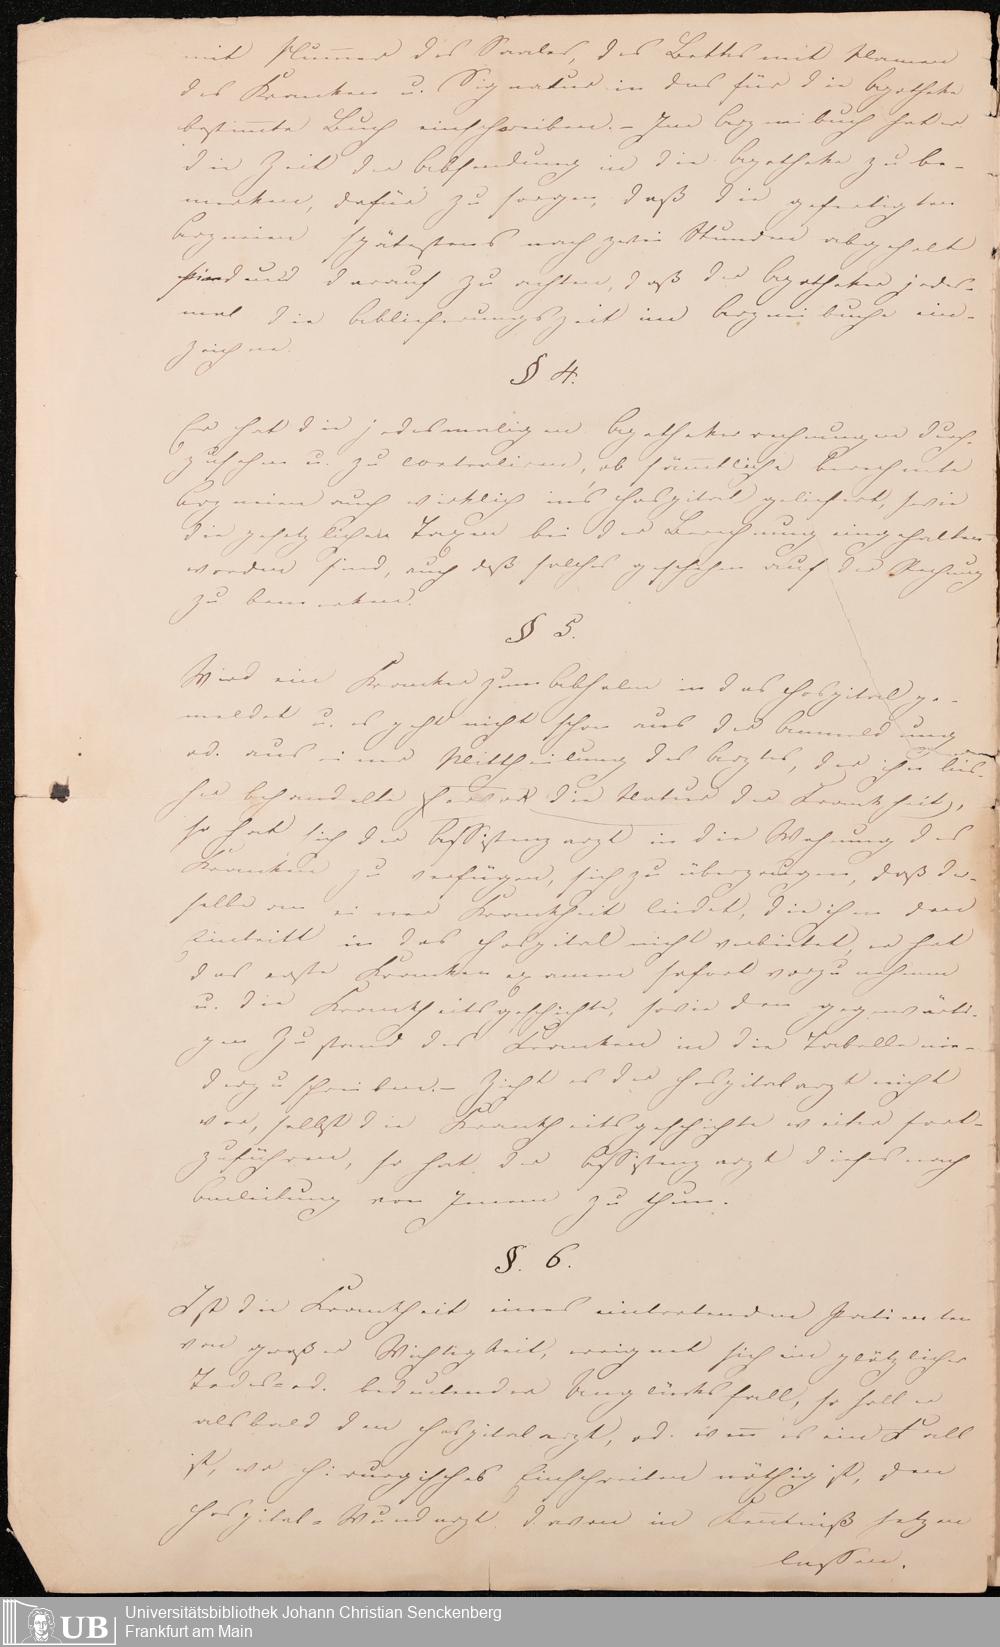 mit Nummer des Saales, des Bettes mit Namen
des Kranken u. Signatur in das für die Apotheke
bestimmte Buch einschreiben. – Im Arzneibuch hat er
die Zeit der Absendung in die Apotheke zu be-
merken, dafür zu sorgen, daß die gefertigten
Arzneien spätestens nach zwei Stunden abgeholt
sind und darauf zu achten, daß der Apotheker jedes-
mal die Ablieferungszeit im Arzneibuche ein-
zeichne.
§ 4.
Er hat die jedesmaligen Apothekerrechnungen durch-
zusehen u. zu controliren, ob sämmtliche berechnete
Arzneien auch wirklich in's Hospital geliefert, sowie
die gesetzlichen Taxen bei der Berechnung eingehalten
worden sind, auch daß solches geschehen auf der Rechnung
zu bemerken.
§ 5.
Wird ein Kranker zum Abholen in das Hospital ge-
meldet u. es geht nicht schon aus der Anmeldung
od. aus einer Mittheilung des Arztes, der ihn bis-
her behandelte hervor die Natur der Krankheit,
so hat sich der Assistenzarzt in die Wohnung des
Kranken zu verfügen, sich zu überzeugen, daß der-
selbe an einer Krankheit leidet, die ihm den
Eintritt in das Hospital nicht verbietet, er hat
das erste Krankenexamen sofort vorzunehmen
u. die Krankheitsgeschichte, sowie den gegenwärti-
gen Zustand des Kranken in die Tabelle nie-
derzuschreiben. – Zieht es der Hospitalarzt nicht
vor, selbst die Krankheitsgeschichte weiter fort-
zuführen, so hat der Assistenzarzt dieses nach
Anleitung von Jenem zu thun.
§. 6.
Ist die Krankheit eines eintretenden Patienten
von großer Wichtigkeit, ereignet sich ein plötzlicher
Todes= od. bedeutender Unglücksfall, so soll er
alsbald den Hospitalarzt, od. wenn es ein Fall
ist, wo chirurgisches Einschreiten nöthig ist, den
Hospital=Wundarzt davon in Kenntniß setzen
lassen.
UB
Universitätsbibliothek Johann Christian Senckenberg
Frankfurt am Main